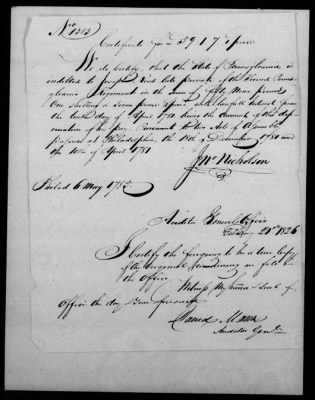 No 1253
Certificate for £59 17
We do certify, that the State of Pennsylvania is
indebted to late private of the Pennsyl-
vania Regiment in the Sum of fifty Nine pounds
One shilling & Seven pence Specie with lawful Interest from
the tenth day of April 1781 being the Amount of the depre-
ciation of his pay, Pursuant to two Acts of Assembly
passed at Philadelphia, the 18th of December 1780 and
the 10th of April 1781
Jno Nicholson
Philad 6 May 178
Auditor Generals Office
21st 1826
I certify the foregoing to be a true Copy
of the Original remaining on file in
the Office
Witness My hand & Seal of
Office the day & year aforesaid
David Mann
Auditor Genl